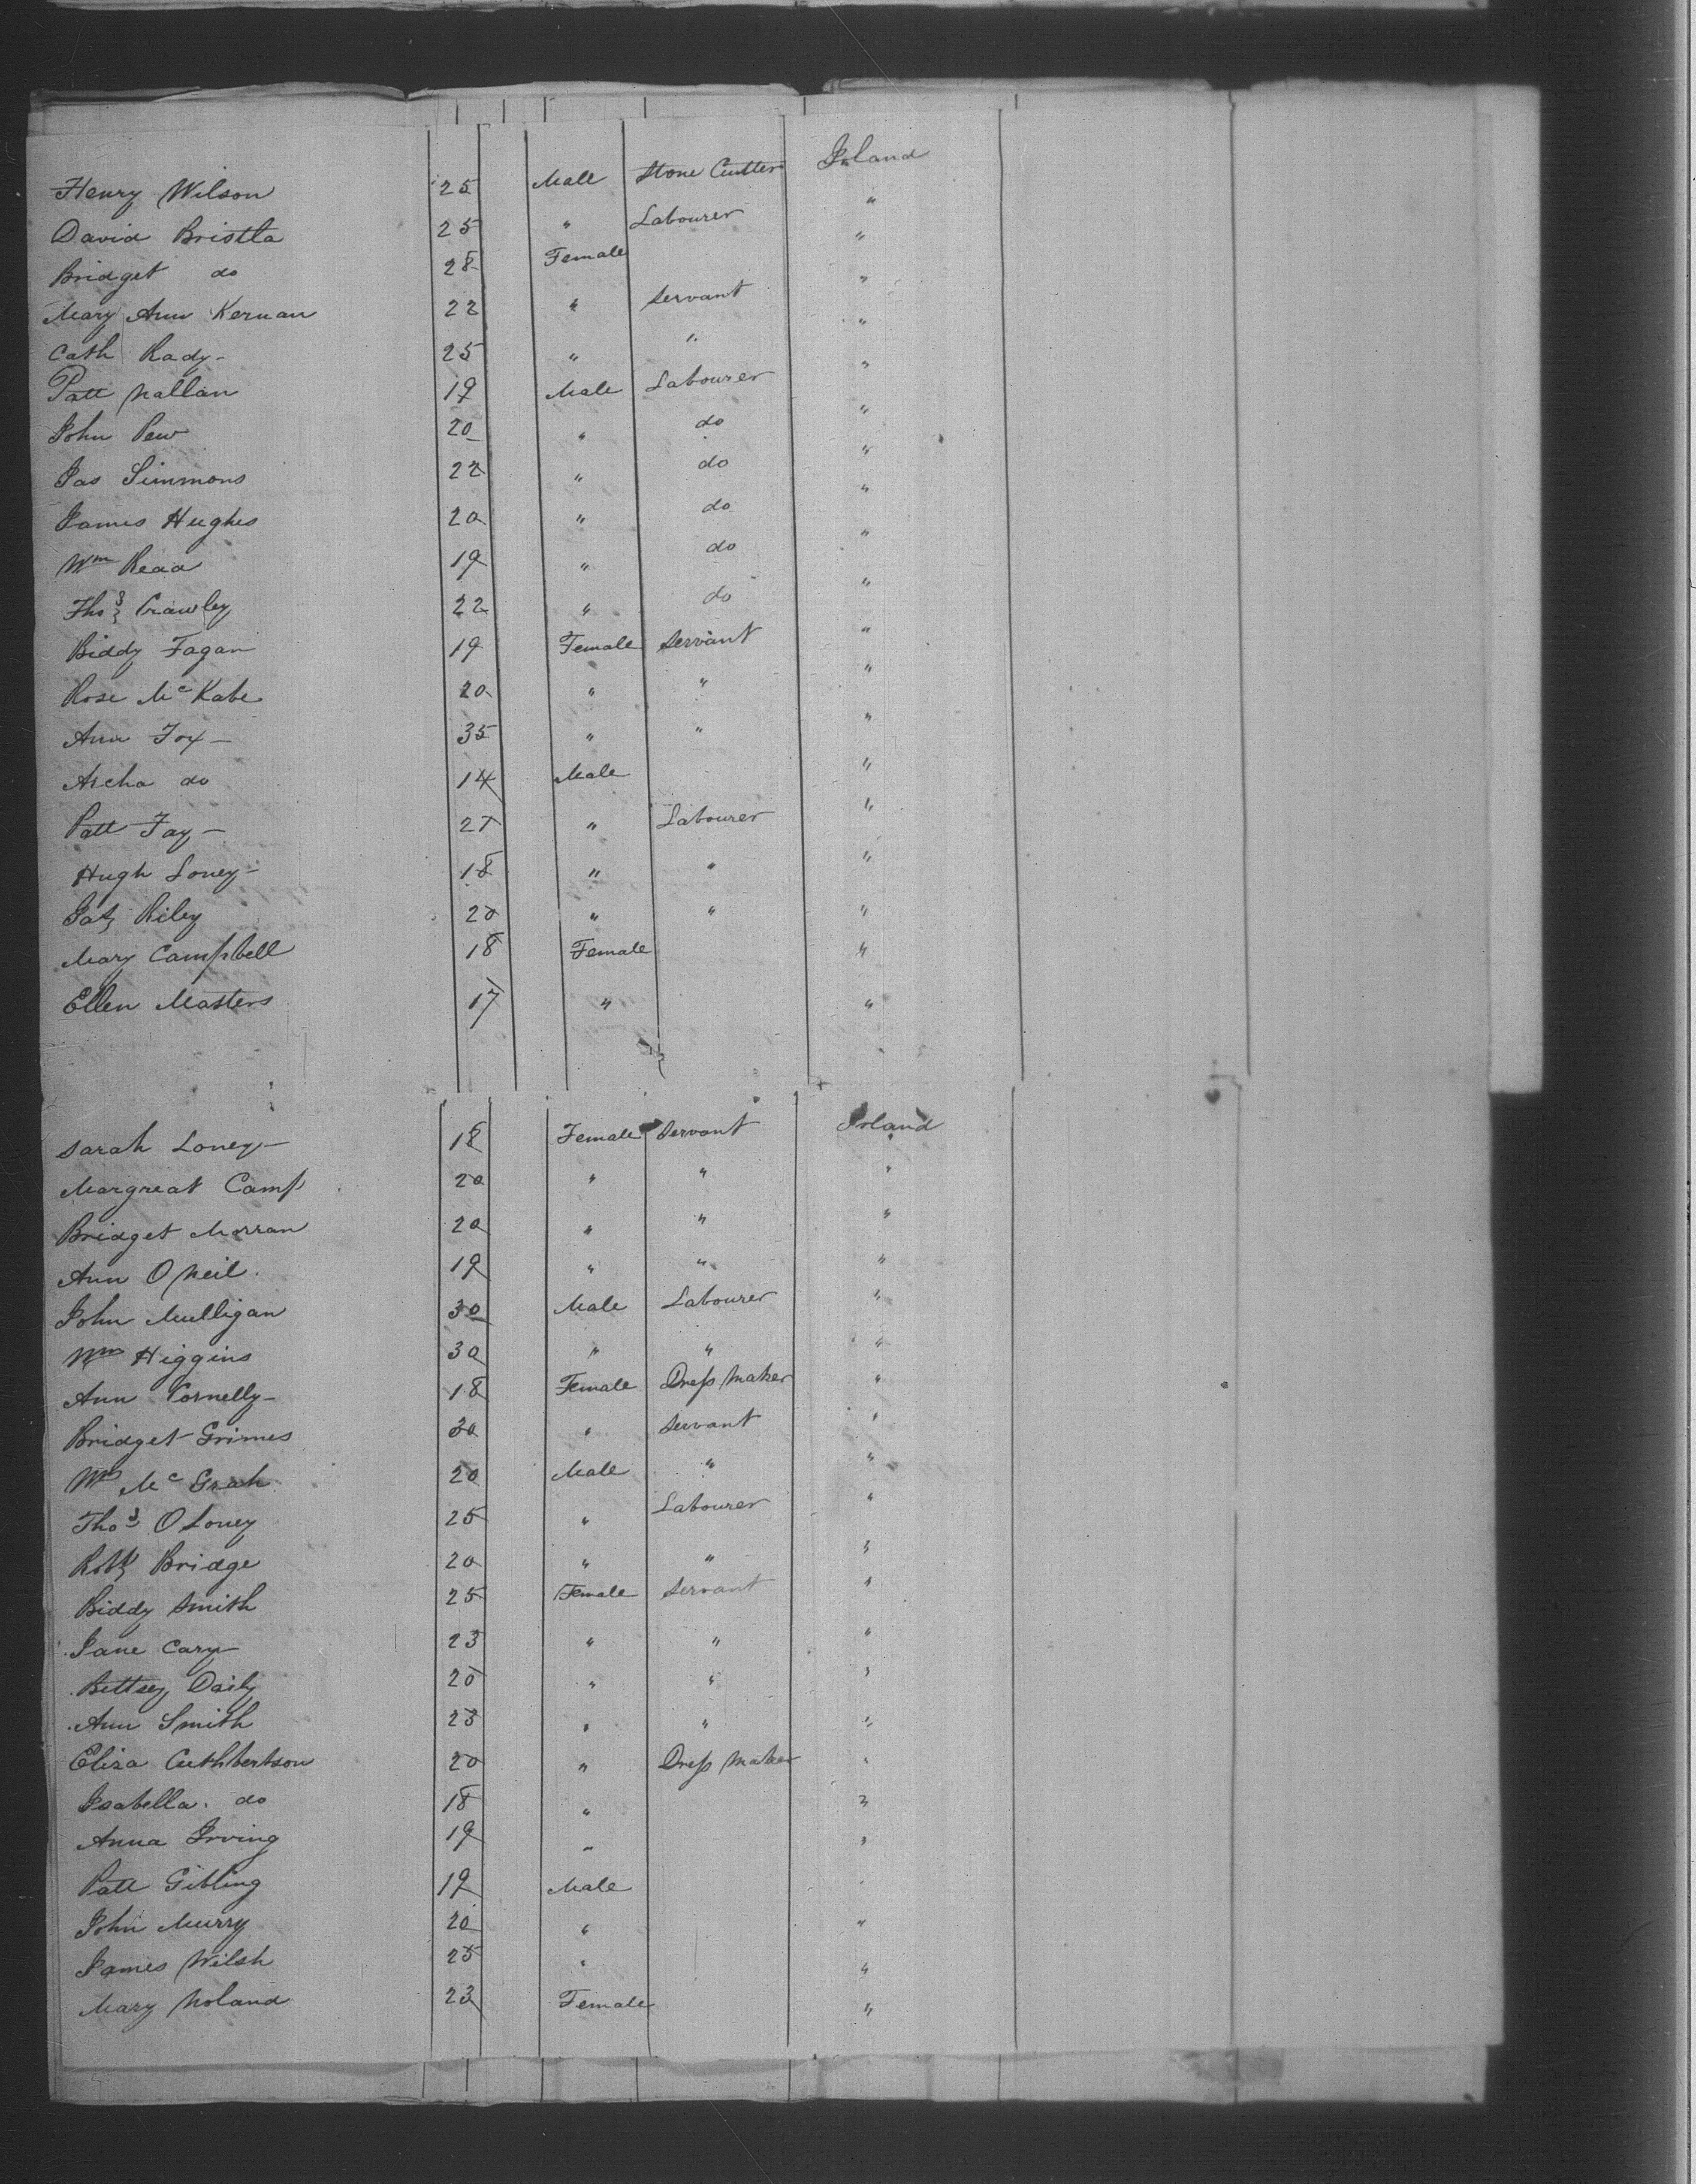 Henry Wilson 25 Male Stone Cutter Irland
David Bristla 25 " Labourer "
Bridget do 28 Female "
Mary Ann Kernan 22 " Servant "
Cath Rady 25 " " "
Patt Nallan 19 Male Labourer "
John Pew 20 " do "
Jas Simmons 22 " do "
James Hughes 20 " do "
Wm Read 19 " do "
Thos Crawley 22 " do "
Biddy Fagan 19 Female Servant "
Rose McKabe 20 " " "
Ann Fox 35 " " "
Archa do 14 Male "
Patt Fay 27 " Labourer "
Hugh Loney 18 " " "
Pat Riley 20 " " "
Mary Campbell 18 Female "
Ellen Masters 17 " "
Sarah Loney 18 Female Servant Irland
Margreat Camp 20 " " "
Bridget Morran 20 " " "
Ann O Neil 19 " " "
John Mulligan 30 Male Labourer "
Wm Higgins 30 " " "
Ann Cornelly 18 Female Dress Maker "
Bridget Grimes 30 " Servant "
Wm McGrah 20 Male " "
Thos O Loney 25 " Labourer "
Robt Bridge 20 " " "
Biddy Smith 25 Female Servant "
Jane Cary 23 " " "
Bettsey Daily 20 " " "
Ann Smith 23 " " "
Eliza Cuthbertson 20 " Dress Maker "
Isabella do 18 " "
Anna Irving 19 " "
Patt Gibling 19 Male "
John Murry 20 " "
James Wilsh 25 " "
Mary Noland 23 Female "